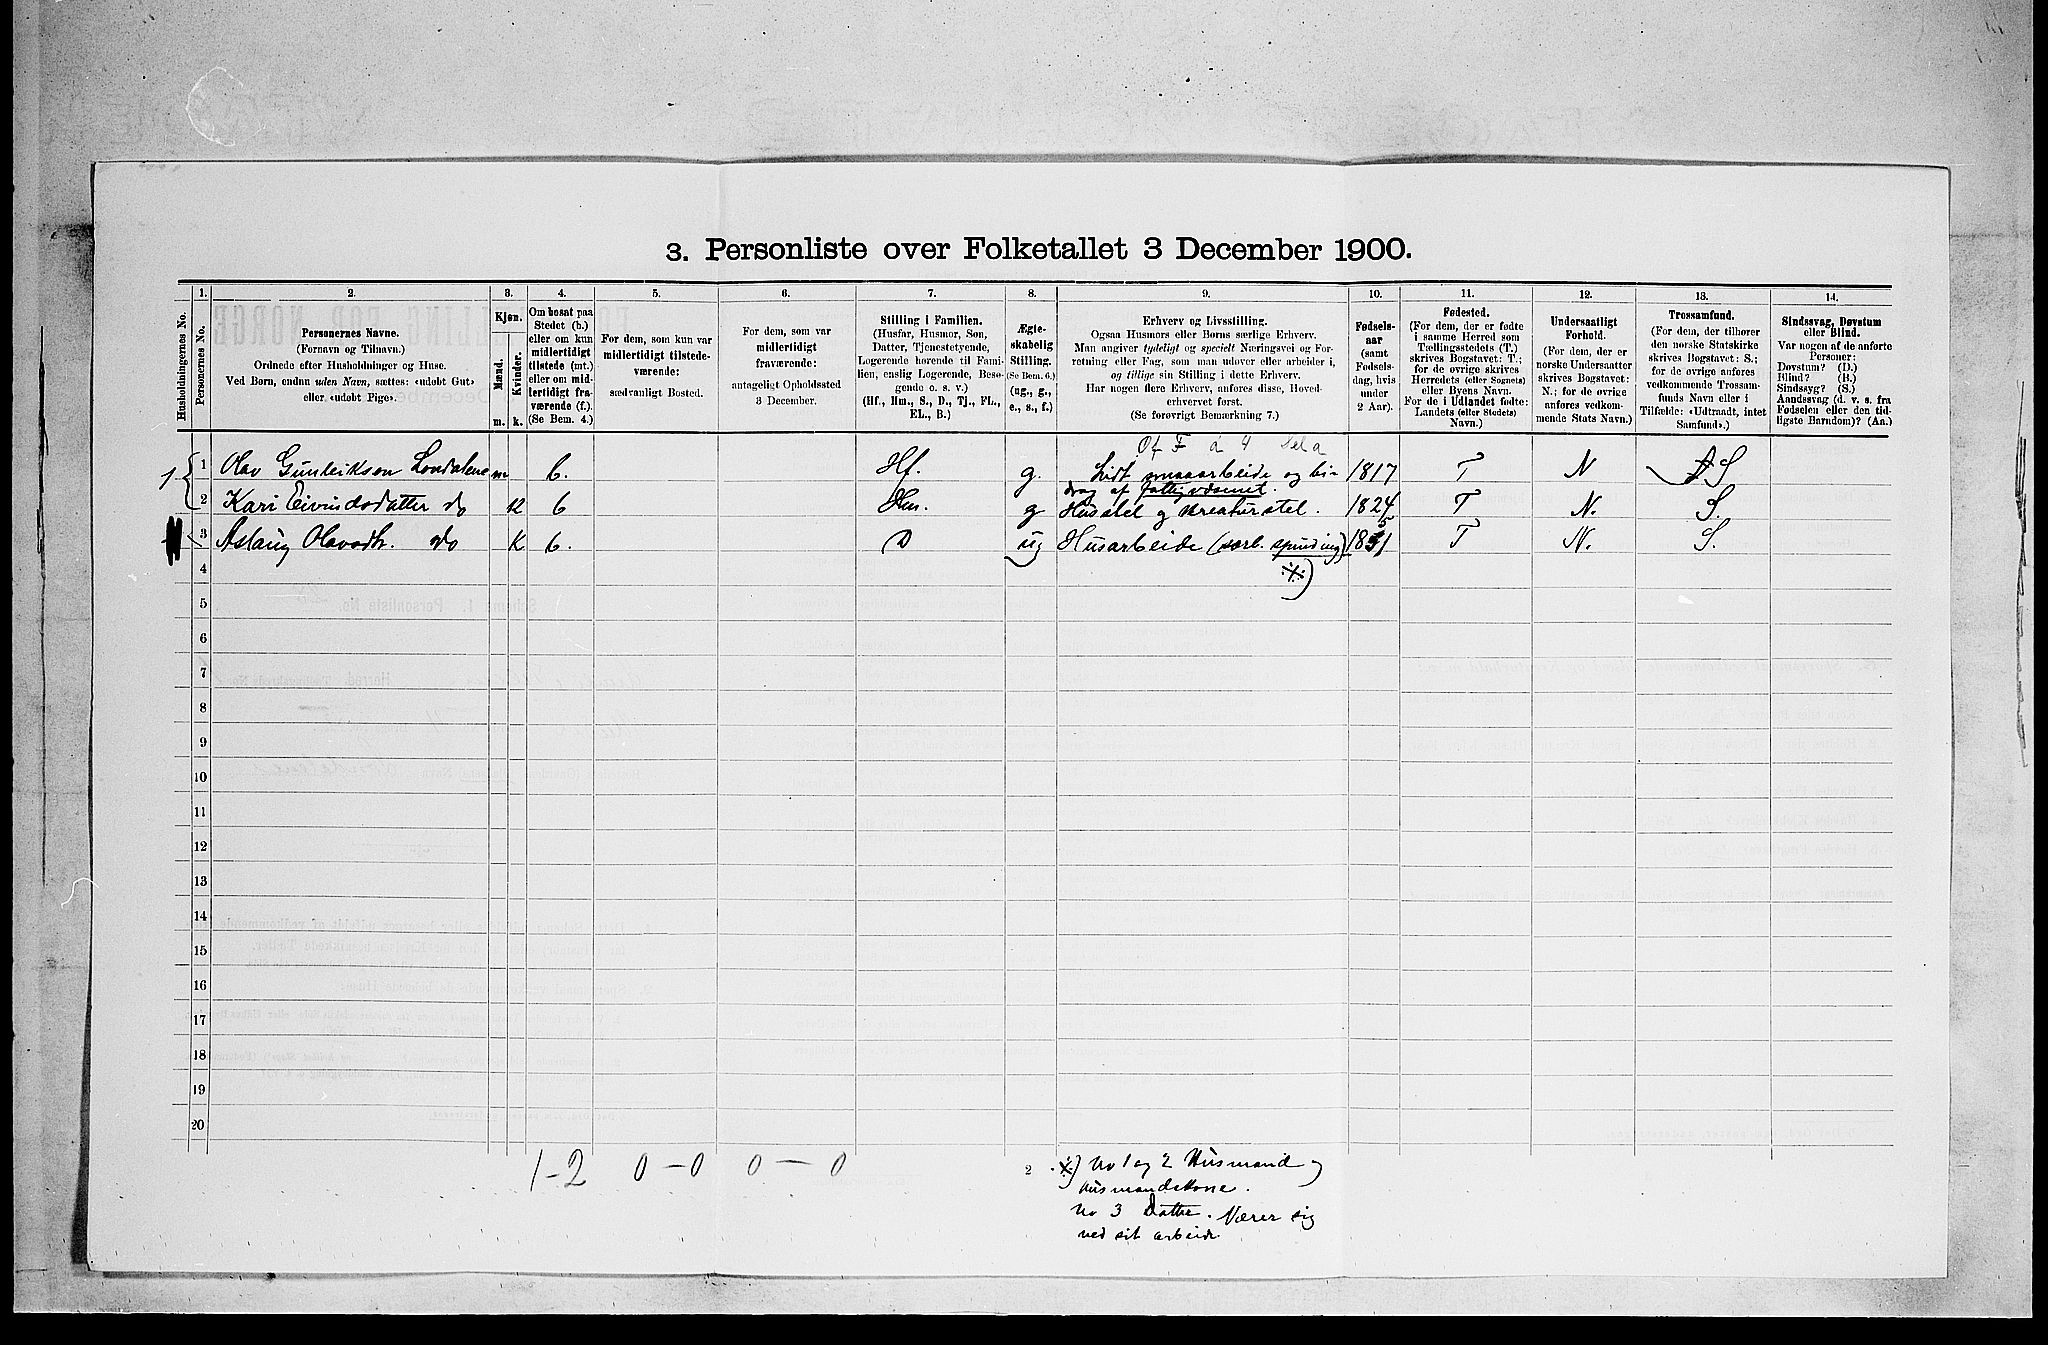 3. Personliste over Folketallet 3 December 1900.
1. 2. 3. 4. 5. 6. 7. 8. 9. 10. 11. 12. 13. 14.
Husholdningernes No.
Personernes No.
Personernes Navne.
(Fornavn og Tilnavn.)
Ordnede efter Husholdninger og Huse.
Ved Børn, endnu uden Navn, sættes: «udøbt Gut»
eller «udøbt Pige».
Kjøn.
Mænd.
Kvinder.
m. k.
Om bosat paa
Stedet (b.)
eller om kun
midlertidigt
tilstede (mt.)
eller om mid-
lertidigt fra-
værende (f.).
(Se Bem. 4.)
For dem, som kun var
midlertidigt tilstede-
værende:
sædvanligt Bosted.
For dem, som var
midlertidigt
fraværende:
antageligt Opholdssted
3 December.
Stilling i Familien.
(Husfar, Husmor, Søn,
Datter, Tjenestetyende,
Logerende hørende til Fami-
lien, enslig Logerende, Besø-
gende o. s. v.)
(Hf., Hm., S., D., Tj., FL.,
EL., B.)
Ægte-
skabelig
Stilling.
(Se Bem. 6.)
(ug., g.,
e., s., f.)
Erhverv og Livsstilling.
Ogsaa Husmors eller Børns særlige Erhverv.
Man angiver tydeligt og specielt Næringsvei og For-
retning eller Fag, som man udøver eller arbeider i,
og tillige sin Stilling i dette Erhverv.
Har nogen flere Erhverv, anføres disse, Hoved-
erhvervet først.
(Se forøvrigt Bemærkning 7.)
Fødsels-
aar
(samt
Fødsels-
dag, hvis
under
2 Aar).
Fødested.
(For dem, der er fødte
i samme Herred som
Tællingsstedets (T.)
skrives Bogstavet: T.;
for de øvrige skrives
Herredets (eller Sognets)
eller Byens Navn.
For de i Udlandet fødte:
Landets (eller Stedets)
Navn.)
Undersaatligt
Forhold.
(For dem, der er
norske Undersaatter
skrives Bogstavet:
N.; for de øvrige
anføres vedkom-
mende Stats Navn.)
Trossamfund.
(For dem, der tilhører
den norske Statskirke
skrives Bogstavet: S.;
for de øvrige anføres
vedkommende Trossam-
funds Navn eller i
Tilfælde: «Udtraadt, intet
Samfund».)
Sindssvag, Døvstum
eller Blind.
Var nogen af de anførte
Personer:
Døvstum? (D.)
Blind? (B.)
Sindssyg? (S.)
Aandssvag (d. v. s. fra
Fødselen eller den tid-
ligste Barndom)? (Aa.)
1 1 Olav Gunleiksen Londalene m b. Hf. g. Lidt smaaarbeide og bi- 1817 T N S
drag af fattigvæsenet.
2 Kari Eivindsdatter do k b Hm. g Husstel og kreaturstel. 1824 T N. S.
3 Aslaug Olavsdtr. do k b. D ug Husarbeide (særb. spinding) 1851 T N. S.
4
5
6
7
8
9
10
11
12
13
14
15
16
17
18
19
20
1 - 2 0 - 0 0 - 0
2
No 1 og 2 Husmand og
Husmandskone.
No 3 Datter. Nærer sig
ved sit arbeide